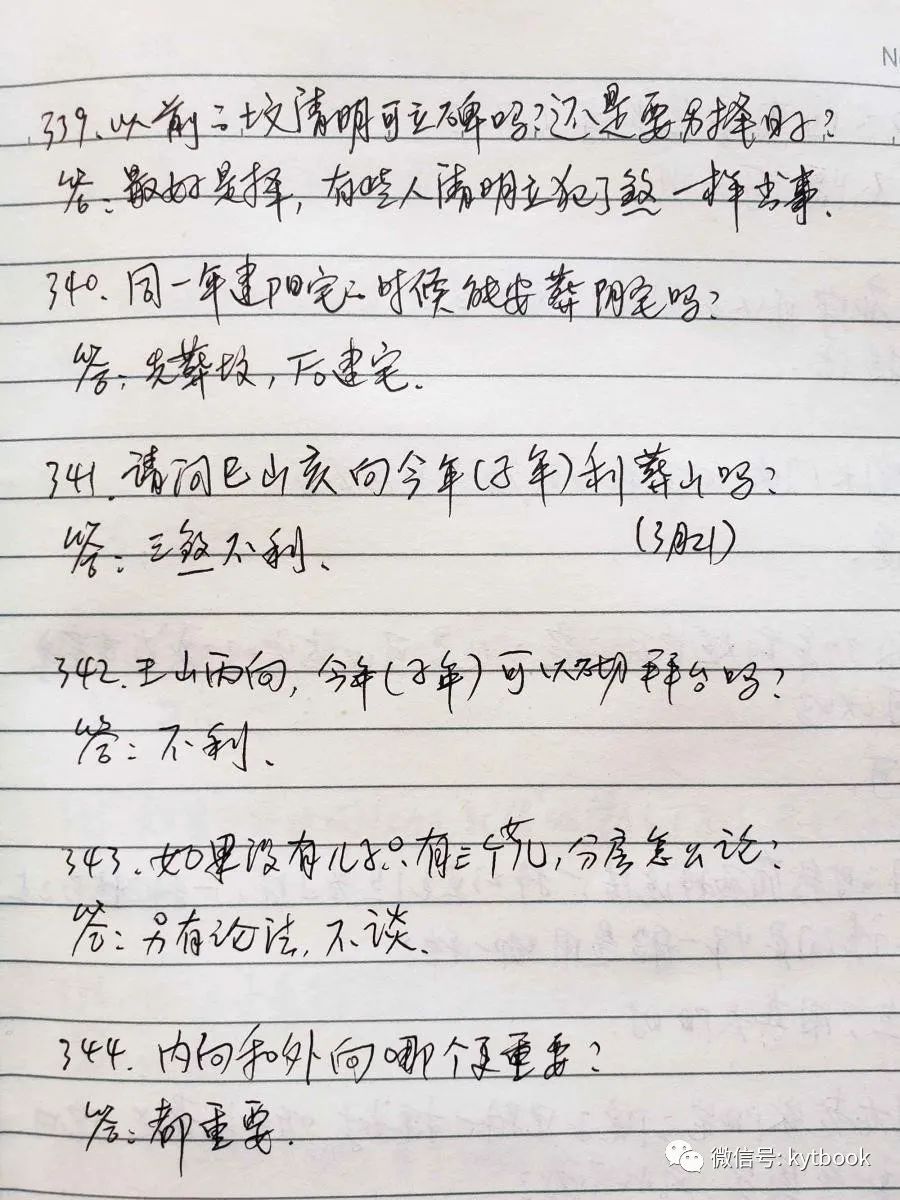 339.以前的坟清明可立碑吗?还是要另择日子?
答:最好是择,有些人清明立犯了煞一样出事.
340.同一年建阳宅的时候能安葬阴宅吗?
答:先葬坟,后建宅.
341.请问巳山亥向今年(子年)利葬山吗?
答:三煞不利. (3月21)
342.壬山丙向,今年(子年)可以砌拜台吗?
答:不利.
343.如果没有儿子只有三个女儿,分房怎么论?
答:另有论法,不谈.
344.内向和外向哪个更重要?
答:都重要.
微信号: kytbook